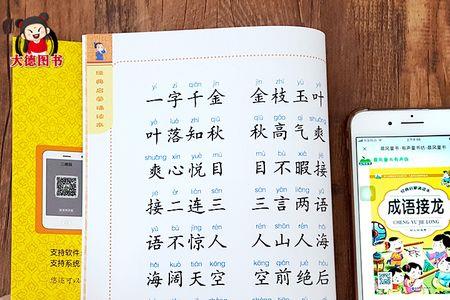 大德图书
经典启蒙诵读本
yí zì qiān jīn jīn zhī yù yè
一字千金 金枝玉叶
yè luò zhī qiū qiū gāo qì shuǎng
叶落知秋 秋高气爽
shuǎng xīn yuè mù mù bù xiá jiē
爽心悦目 目不暇接
jiē èr lián sān sān yán liǎng yǔ
接二连三 三言两语
yǔ bù jīng rén rén shān rén hǎi
语不惊人 人山人海
hǎi kuò tiān kōng kōng qián jué hòu
海阔天空 空前绝后
二维码
支持软件
支持系统
您还可以
晨风童书·有声童书坊-晨风童书
晨风童书有声版
成语接龙
CHENG YU JIE LONG